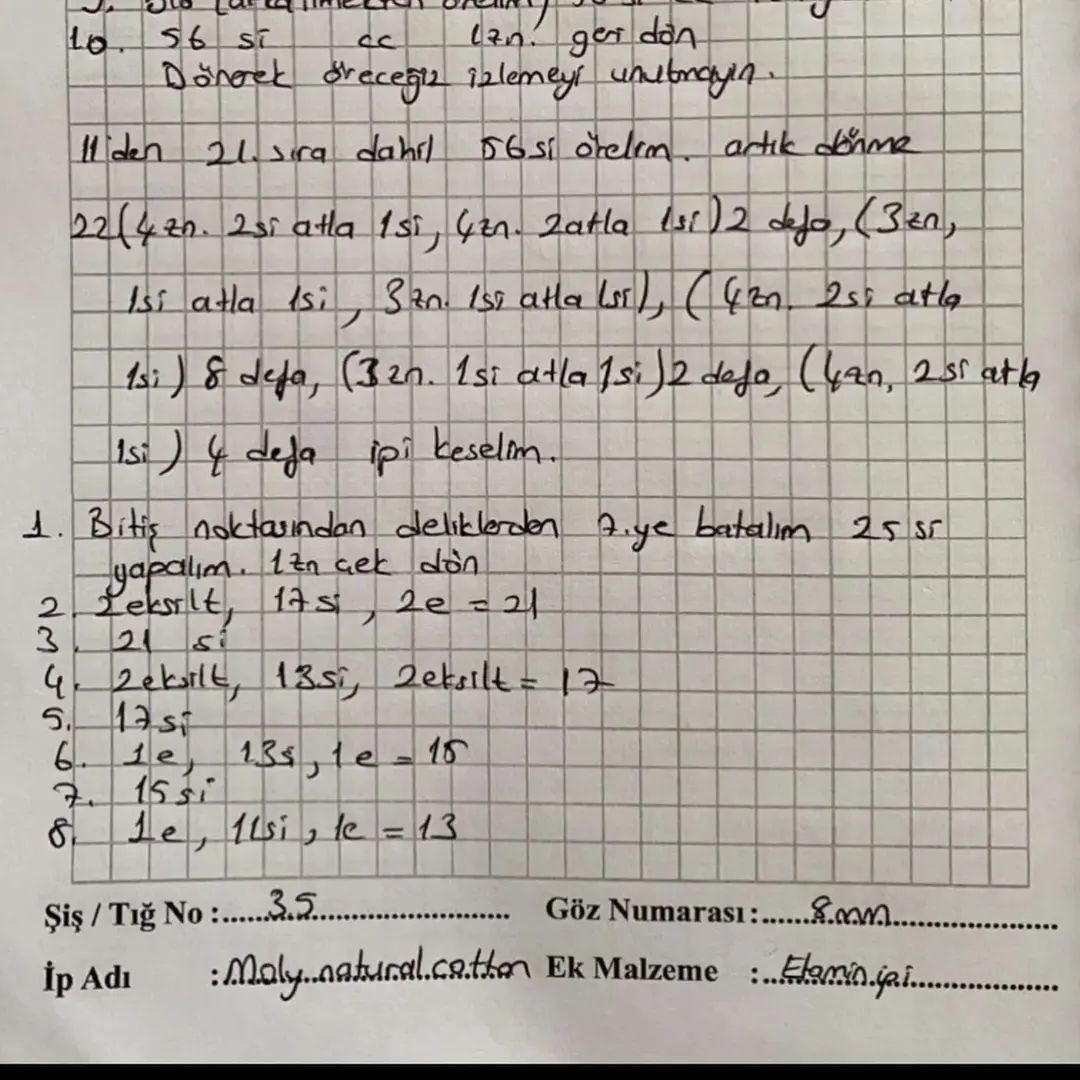 10. 56 si cc 1zn. geri dön
Dönerek öreceğiz izlemeyi unutmayın.
11'den 21. sıra dahil 56si örelim. artık dönme
22(4zn. 2si atla 1si, 4zn. 2atla 1si)2 defa, (3zn,
1si atla 1si, 3zn. 1si atla 1si), (4zn. 2si atla
1si) 8 defa, (3zn. 1si atla 1si)2 defa, (4zn, 2si atla
1si) 4 defa ipi keselim.
1. Bitiş noktasından deliklerden 7.ye batalım 25 si
yapalım. 1zn çek dön
2. 2eksilt, 17si, 2e = 21
3. 21 si
4. 2eksilt, 13si, 2eksilt = 17
5. 17si
6. 1e, 13s, 1e = 15
7. 15si
8. 1e, 11si, 1e = 13
Şiş / Tığ No :......3.5............................ Göz Numarası:......8.mm......................
İp Adı :.Moly..natural.cotton Ek Malzeme :..Etamin.ipi...................